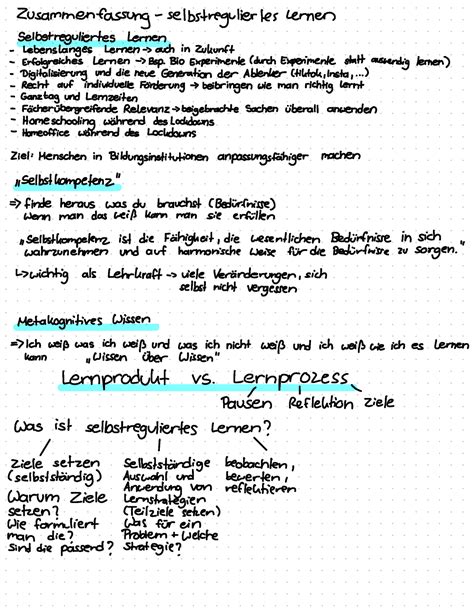 Zusammenfassung – selbstreguliertes lernen
Selbstreguliertes Lernen
- Lebenslanges Lernen → auch in Zukunft
- Erfolgreiches Lernen → Bsp. Bio Experimente (durch Experimente statt auswendig lernen)
- Digitalisierung und die neue Generation der Ablenker (Tiktok, Insta, ...)
- Recht auf individuelle Förderung → beibringen wie man richtig lernt
- Ganztag und Lernzeiten
- Fächerübergreifende Relevanz → beigebrachte Sachen überall anwenden
- Homeschooling während des Lockdowns
- Homeoffice während des Lockdowns
Ziel: Menschen in Bildungsinstitutionen anpassungsfähiger machen
„Selbstkompetenz"
⇒ finde heraus was du brauchst (Bedürfnisse)
Wenn man das weiß kann man sie erfüllen
„Selbstkompetenz ist die Fähigkeit, die wesentlichen Bedürfnisse in sich
wahrzunehmen und auf harmonische Weise für die Bedürfnisse zu sorgen."
↳ wichtig als Lehrkraft → viele Veränderungen, sich
selbst nicht vergessen
Metakognitives Wissen
⇒ Ich weiß was ich weiß und was ich nicht weiß und ich weiß wie ich es lernen
kann „Wissen über Wissen"
Lernprodukt vs. Lernprozess
Pausen Reflektion Ziele
Was ist selbstreguliertes Lernen?
Ziele setzen
(selbstständig)
Warum Ziele
setzen?
Wie formuliert
man die?
Sind die passend?
Selbstständige
Auswahl und
Anwendung von
Lernstrategien
(Teilziele setzen)
Was für ein
Problem + welche
Strategie?
beobachten,
bewerten,
reflektieren